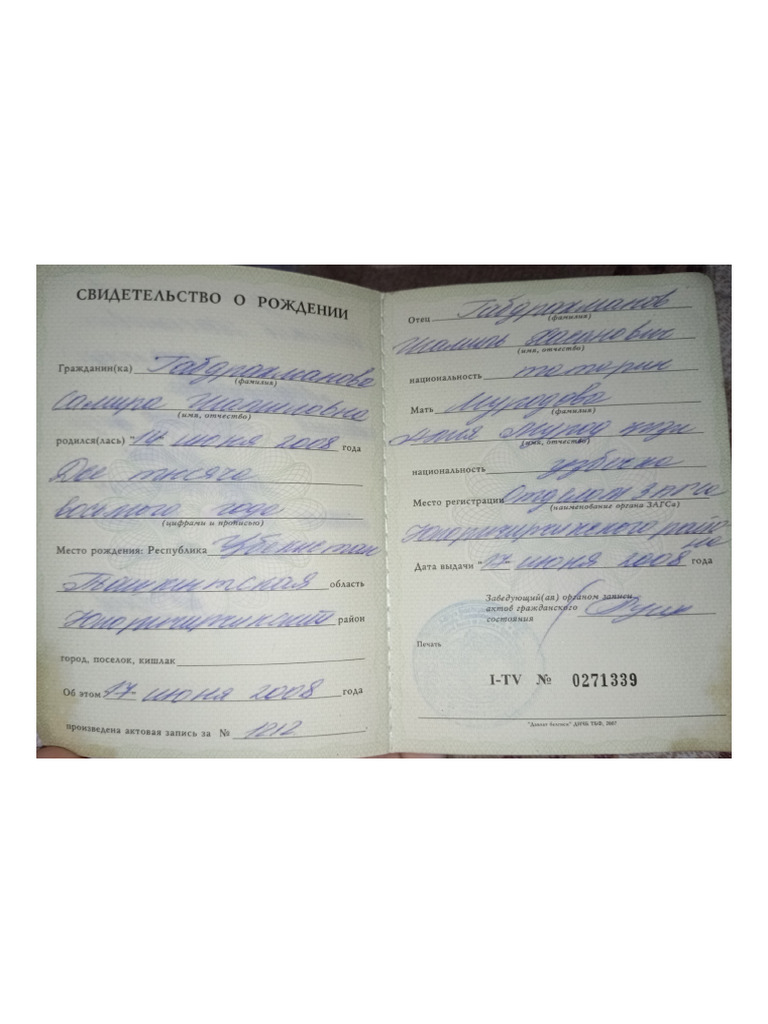 СВИДЕТЕЛЬСТВО О РОЖДЕНИИ
Гражданин(ка) Габдрахманова
(фамилия)
Самира Шамиловна
(имя, отчество)
родился(лась) " июня 2008 года
Две тысяча
восьмого года
(цифрами и прописью)
Место рождения: Республика Узбекистан
Ташкентская область
район
город, поселок, кишлак
Об этом 17 июня 2008 года
произведена актовая запись за № 1212
Отец Габдрахманов
(фамилия)
(имя, отчество)
национальность татарин
Мать Муродова
(фамилия)
Мурод кизи
(имя, отчество)
национальность узбечка
Место регистрации Отделом загса
(наименование органа ЗАГСа)
района
Дата выдачи "17 июня 2008 года
Заведующий(ая) органом записи
актов гражданского
состояния
Печать
I-TV № 0271339
"Давлат белгиси" ДИЧБ ТБФ, 2007